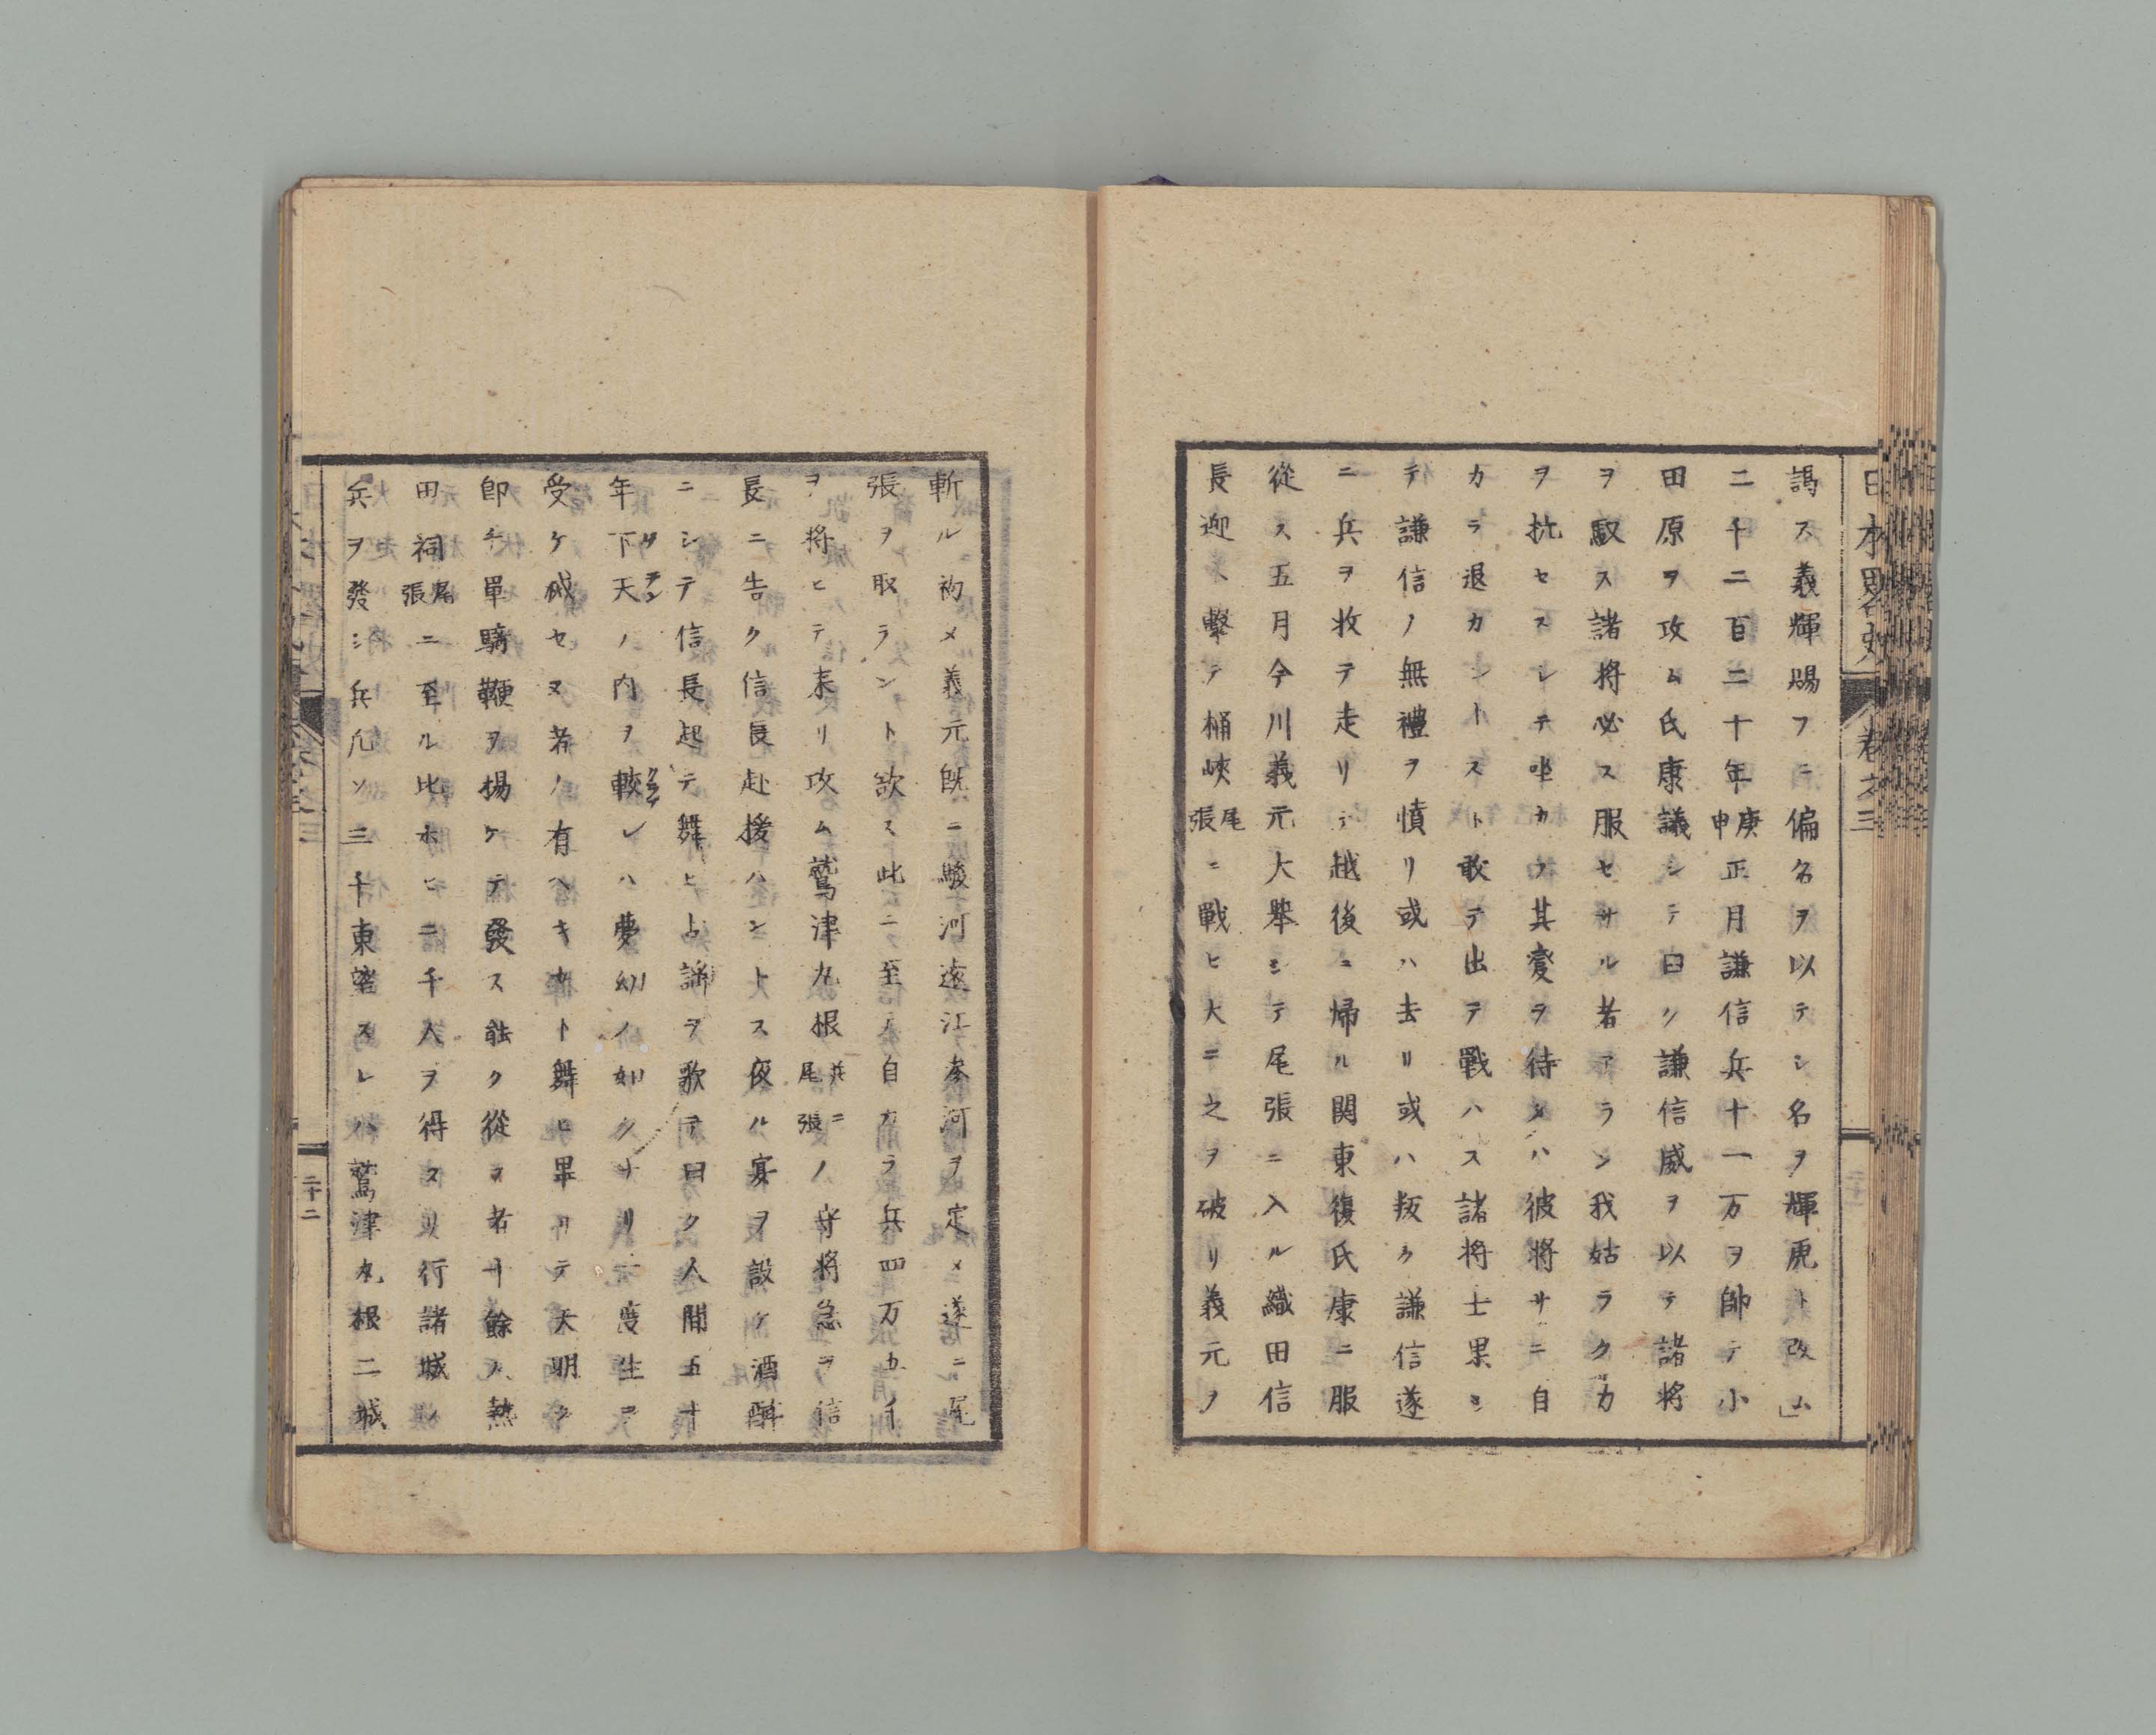 日本略史 卷之三
謁ス義輝賜フニ偏名ヲ以テシ名ヲ輝虎ト改ム」
二千二百二十年庚申正月謙信兵十一万ヲ帥テ小
田原ヲ攻ム氏康議シテ曰ク謙信威ヲ以テ諸将
ヲ馭ス諸将必ス服セサル者アラン我姑ラクカ
ヲ抗セスシテ其変ヲ待タハ彼将サニ自
カラ退カントスト敢テ出テ戰ハス諸将士果シ
テ謙信ノ無禮ヲ憤リ或ハ去リ或ハ叛ク謙信遂
ニ兵ヲ收テ走リテ越後ニ帰ル関東復氏康ニ服
從ス五月今川義元大舉シテ尾張ニ入ル織田信
長迎ヘ擊テ桶峽尾張ニ戰ヒ大ニ之ヲ破リ義元ヲ
斬ル初メ義元既ニ駿河遠江参河ヲ定メ遂ニ尾
張ヲ取ラント欲ス此ニ至リ自カラ兵四万五千
ヲ将ヒテ来リ攻ム鷲津丸根共ニ尾張ノ守将急ヲ信
長ニ告ク信長赴援ハントス夜ル宴ヲ設ケ酒酣
ニシテ信長起テ舞ヒ占謡ヲ歌テ曰ク人間五十
年下天ノ内ヲ較レハ夢幻ノ如クナリ一度生ヲ
受ケ滅セヌ者ノ有ヘキカト舞ヒ畢リテ天明ク
即チ單騎鞭ヲ揚ケテ發ス能ク從ヲ者十餘人熱
田祠尾張ニ至ル比ホヒニ千人ヲ得タリ行諸城ノ
兵ヲ發シ兵凡ソ三千東望スレハ鷲津丸根二城
二十二